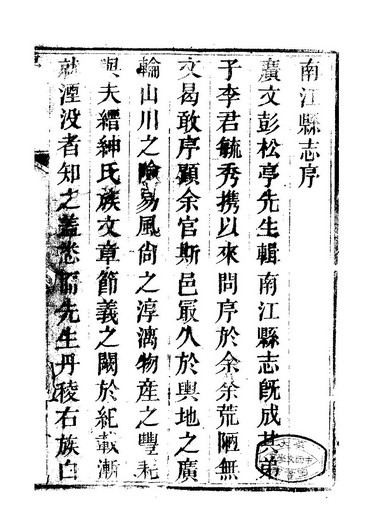 南江縣志序
廣文彭松亭先生輯南江縣志既成其弟
子李君毓秀携以來問序於余余荒陋無
文曷敢序顧余官斯邑最久於輿地之廣
輪山川之險易風尙之淳漓物産之豐耗
與夫縉紳氏族文章節義之闕於紀載漸
就湮没者知之蓋悉先生丹稜右族白